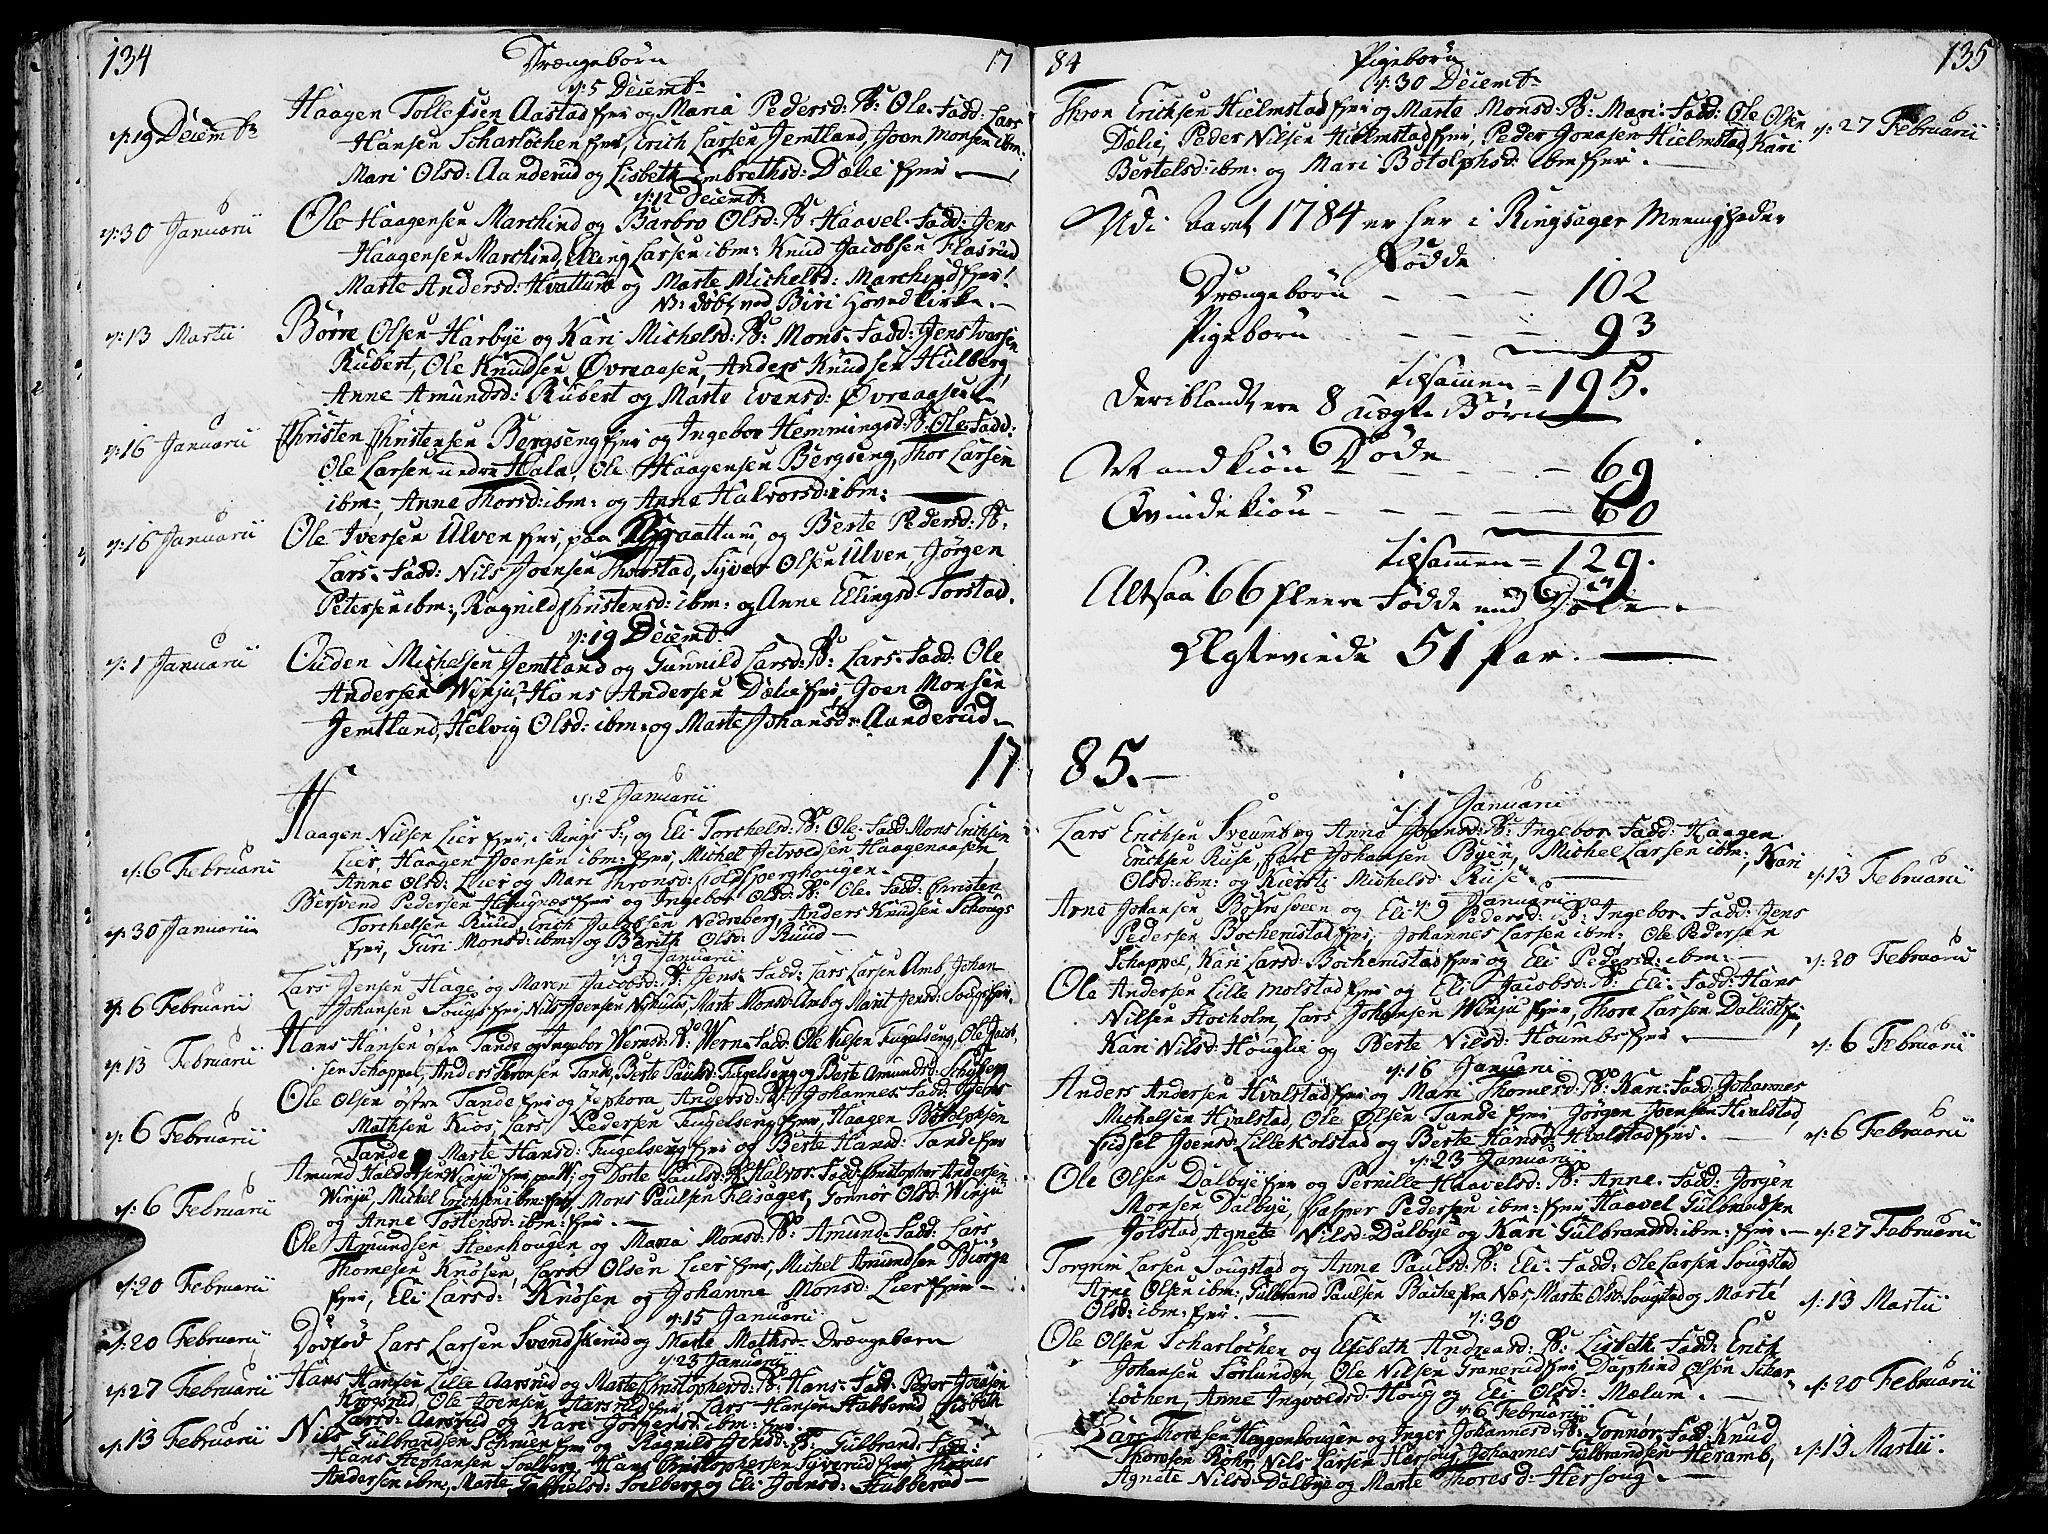 134
Drængebørn
17
d: 5 Decemb:
d: 19 Decemb:
Haagen Tollefsen Aastad Eyer og Maria Pedersd: B: Ole. Fadd: Lars
Hansen Scharløchen Eyer, Erich Larsen Jemtland, Joen Monsen ibm:
Mari Olsd: Aanderud og Lisbeth Embrethsd: Dælie Eyer
d: 12 Decemb:
d: 30 Januarii
Ole Haagensen Marchind og Barbro Olsd: B: Haavel. Fadd: Jens
Haagensen Marchind, Elling Larsen ibm: Knud Jacobsen Flasrud
Marte Andersd: Hvattum og Marte Michelsd: Marchind
NB: døbt ved Biri Hovedkirke.
d: 13 Martii
Børre Olsen Harbye og Kari Michelsd: B: Mons. Fadd: Jens Ivarsen
Rubert, Ole Knudsen Øvraasen, Anders Knudsen Hulberg,
Anne Amundsd: Rubert og Marte Evensd: Øvraasen
d: 16 Januarii
Christen Christensen Bergseng og Ingebor Hemmingsd: B: Ole. Fadd:
Ole Larsen nedre Hala, Ole Haagensen Bergseng, Thor Larsen
ibm:, Anne Thorsd: ibm: og Anne Halvorsd: ibm:
d: 16 Januarii
Ole Iversen Ulven, paa Braattum, og Berte Pedersd: B:
Lars. Fadd: Nils Joensen Thorstad, Syver Olsen Ulven, Jørgen
Petersen ibm:, Ragnild Christensd: ibm: og Anne Ellingsd: Torstad.
d: 19 Decemb:
d: 1 Januarii
Ouden Michelsen Jemtland og Gunnild Larsd: B: Lars. Fadd: Ole
Andersen Winju, Hans Andersen Dælie, Joen Monsen
Jemtland, Helvig Olsd: ibm: og Marte Johansd: Aanderud.
17
d: 2 Januarii
d: 6 Februarii
Haagen Nilsen Lier, i Rings S:, og Eli Torchelsd: B: Ole. Fadd: Mons Erichsen
Lier, Haagen Joensen ibm:, Michel Haagenaasen
Anne Olsd: Lier og Mari Thronsd:
d: 30 Januarii
Bersvend Pedersen og Ingebor Olsd: B: Ole. Fadd: Christen
Torchelsen Ruud, Erich Nedreberg, Anders Knudsen Schougs
Guri Monsd: ibm: og Berith Olsd: Ruud
d: 9 Januarii
d: 6 Februarii
Lars Jensen Hage og Maren Jacobsd: B: Jens. Fadd: Lars Larsen Amb, Johan
Johansen Sougs, Nils Joensen, Marte Monsd: Amb og Marit Jensd:
d: 13 Februarii
Hans Hansen østre Tande og Ingebor Wernsd: B: Wern. Fadd: Ole Nilsen Fugelseng, Ole Jacob
sen Schappel, Anders Thronsen Tande, Berte Paulsd: Fugelseng og Berte Amundsd: Schyberg
d: 6 Februarii
Ole Olsen østre Tande og Zephora Andersd: B: Johannes. Fadd:
Mathsen Kiøs, Lars Pedersen Fugelseng, Haagen Botolphsen
Tande, Marte Hansd: Fugelseng og Berte Hansd: Tande
d: 6 Februarii
Amund Haldorsen Winju og Dorte Paulsd: B: Halvor. Fadd: Christopher Andersen
Winju, Michel Erichsen ibm:, Mons Paulsen Flisager, Gonnor Olsd: Winju
og Anne Tostensd: ibm:
d: 20 Februarii
Ole Amundsen Steenhougen og Maria Monsd: B: Amund. Fadd: Lars
Thomesen Knøsen, Lars Olsen Lier, Michel Amundsen Biørge
Eli Larsd: Knøsen og Johanne Monsd: Lier
d: 15 Januarii
d: 20 Februarii
Dødfød Lars Larsen Svendskerud og Marte Mathsd: Drængebarn
d: 23 Januarii
d: 27 Februarii
Hans Hansen Lille Aarsrud og Marte Christophersd: B: Hans. Fadd: Peder Joensen
Krogsrud, Ole Joensen, Lars Hansen Stubberud, Lisbeth
Larsd: Aarsrud og Kari Jørgensd: ibm:
d: 13 Februarii
Nils Gulbrandsen og Ragnild Jensd: B: Gulbrand. Fadd:
Hans Stephansen Soelberg, Hans Christophersen Syverud, Thrones
Andersen ibm, Marte Gabrielsd: Soelberg og Eli Joensd: Stubberud
84
Pigebørn
135
d: 30 Decemb:
Thron Erichsen Hielmstad og Marte Monsd: B: Mari. Fadd: Ole Olsen
d: 27 Februarii
Dælie, Peder Nilsen Hielmstad, Peder Jonasen Hielmstad, Kari
Bertelsd: ibm: og Mari Botolphsd: ibm
Udi Aaret 1784 er her i Ringsager Meenigheder
Fødde
Drængebørn - - - 102
Pigebørn - - - 93
tilsammen = 195.
Deriblandt ere 8 uægte Børn
Døde
Mandkiøn - - - 69
Qvindekiøn - - - 60
tilsammen = 129.
Altsaa 66 fleere Fødde end Døde.
Ægteviede 51 Par.
85.
d: 1 Januarii
Lars Erichsen Sveumb og Anne Joensd: B: Ingebor. Fadd: Haagen
Erichsen Ruse, Carl Johansen Byen, Michel Larsen ibm:, Kari
d: 13 Februarii
Olsd: ibm: og Kiersti Michelsd: Ruse.
d: 9 Januarii
Arne Johansen Botnsveen og Eli Pedersd: B: Ingebor. Fadd: Jens
Pedersen Bochenstad, Johannes Larsen ibm:, Ole Pedersen
d: 20 Februarii
Schappel, Kari Larsd: Bochenstad og Eli Pedersd: ibm:
Ole Andersen Lille Molstad og Eli Jacobsd: B: Eli. Fadd: Hans
Nilsen Hocholm, Lars Johansen Winju, Thore Larsen
d: 6 Februarii
Kari Nilsd: Houglie og Berte Nilsd: Houmb
d: 16 Januarii
Anders Andersen Hvalstad og Mari Thomesd: B: Kari. Fadd: Johannes
Michelsen Hvalstad, Ole Olsen Tande, Jørgen Joensen Hvalstad,
d: 6 Februarii
Sidsel Joensd: Lille Kolstad og Berte Hansd: Hvalstad.
d: 23 Januarii
Ole Olsen Dalbye og Pernille Haavelsd: B: Anne. Fadd: Jørgen
Monsen Dalbye, Casper Pedersen ibm:, Haavel Gulbrandsen
d: 27 Februarii
Jolstad, Agnete Nilsd: Dalbye og Kari Gulbrandsd: ibm:
Torgrim Larsen Sougstad og Anne Paulsd: B: Eli. Fadd: Ole Larsen Sougstad
Arne Olsen ibm:, Gulbrand Paulsen Bache fra Næs, Marte Olsd: Sougstad og Marte
d: 13 Martii
Olsd: ibm:
d: 30
Ole Olsen Scharløchen og Elsebeth Andreasd: B: Lisbeth. Fadd: Erich
Johansen Sørlunden, Ole Nilsen Granerud, Daphind Olsen Schar
d: 20 Februarii
løchen, Anne Ingvoldsd: Houg og Eli Olsd: Mælum.
d: 6 Februarii
Lars Thoresen Heggenhougen og Inger Johannesd: B: Gonnor. Fadd: Knud
Thoresen Røhr, Nils Larsen Hersoug, Johannes Gulbrandsen Heramb,
d: 13 Martii.
Agnete Nilsd: Dalbye og Marte Thoresd: Hersoug.